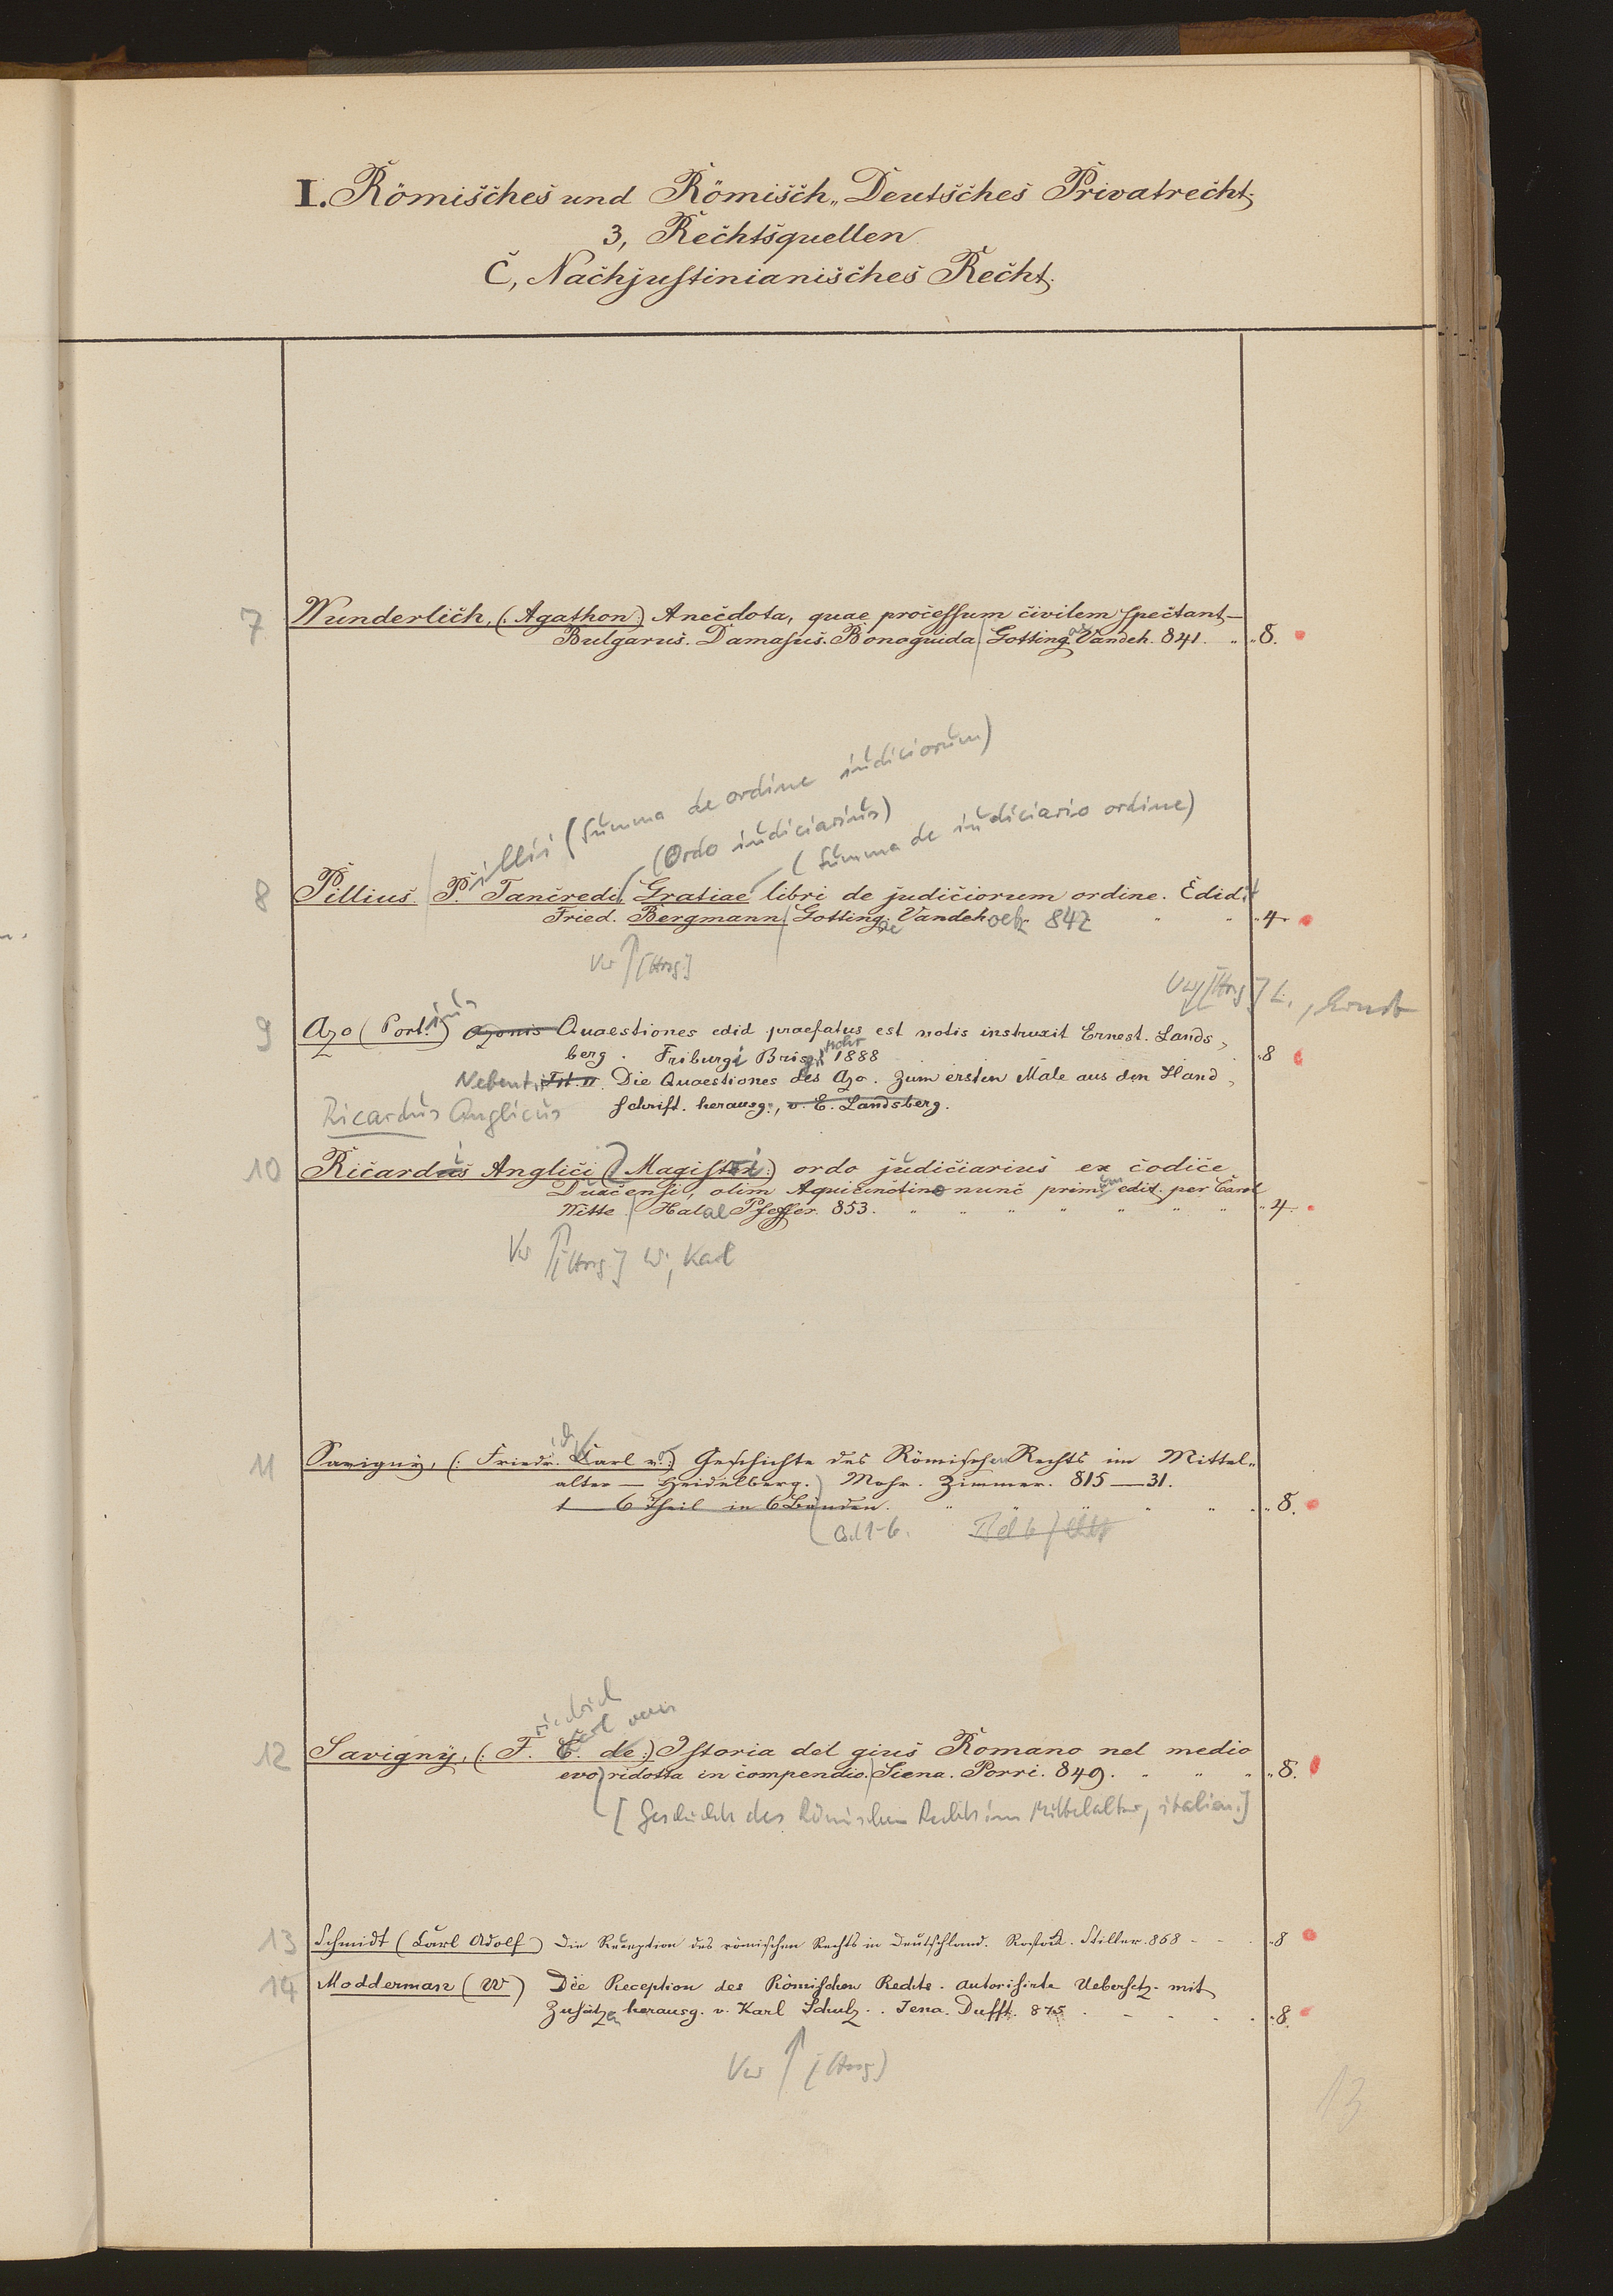 I. Römisches und Römisch-Deutsches Privatrecht
3, Rechtsquellen
C, Nachjustinianisches Recht.
7 Wunderlich, (: Agathon :) Anecdota, quae processum civilem spectant, —
Bulgarus. Damasus. Bonoguida Gotting. Vandeh. 841. " " 8.
illii (Summa de ordine iudiciorum)
(Ordo iudiciarius)
(Summa de iudiciario ordine)
8 Pillius P. Tancredi, Gratiae libri de judiciorum ordine. Edidit
Fried. Bergmann Gotting. Vandehoek 842 " " " 4
Vw ↑ [Hrsg.]
Vw [Hrsg.] L., Ernst
9 Azo (Portius) Azonis Quaestiones edid. praefatus est notis instruxit Ernest. Lands,
berg. Friburgi Brisg. Mohr 1888 8
Nebent.: Tit. II. Die Quaestiones des Azo. Zum ersten Male aus den Hand,
schrift. herausg., v. E. Landsberg.
Ricardus Anglicus
10 Ricardi Anglici (Magistri:) ordo judiciarius ex codice
Duacensi, olim Aquicinctino nunc primum edit. per Carol
Witte. Halae Pfeffer. 853. " " " " " " " " 4.
Vw ↑ [Hrsg.] W., Karl
11 Savigny, (: Friedr. Karl v. :) Geschichte des Römischen Rechts im Mittel-
alter — Heidelberg. Mohr. Zimmer. 815—31.
1—6 Theil in 6 Bänden. " " " " " " 8.
Bd. 1-6.
riedrich
Carl von
12 Savigny, (: F. C. de :) Istoria del gius Romano nel medio
evo ridotta in compendio. Siena. Porri. 849. " " " " 8.
[Geschichte des Römischen Rechts im Mittelalter, italien.]
13 Schmidt (Carl Adolf) Die Reception des römischen Rechts in Deutschland. Rostock. Stiller. 868 - - . 8
14 Modderman (W) Die Reception des Römischen Rechts. autorisirte Uebersetz. mit
Zusätzen herausg. v. Karl Schulz.. Jena. Dufft. 875 . - . . . 8.
Vw ↑ [Hrsg]
13